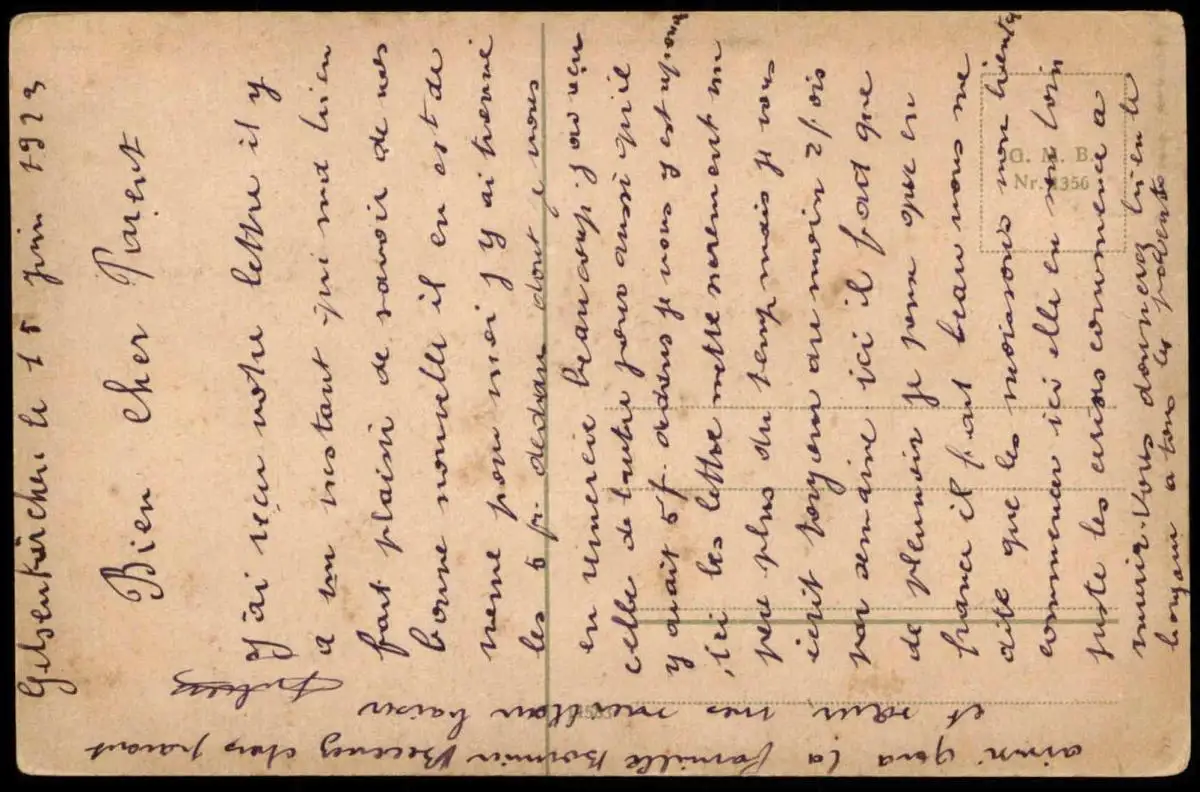 Gelsenkirchen le 15 juin 1923
Bien Cher Parent
J'ai recu votre lettre il y
a un instant qui ma bien
fait plaisir de savoir de vos
bonne nouvelle il en est de
meme pour moi j'y ai trouvé
les 5 f. dedan dont je vous
en remercie beaucoup j'ai recu
celle de l'autre jour aussi qu'il
y avait 5 f dedens je vous y est
ici les lettre mette serement un
peu plus du temp mais je vous
ecrit toujour au moin 2 fois
par semaine ici il fait que
de pleuvoir je pense que en
france il fait beau vous me
dite que les moissons von bientot
commencer ici elle en son loin
juste les cerises commence a
murir. Vous donnerez bien le
bonjour a tous les parents
ainsi qua la famille Bonnin Recevez chers parant
et sœur mes meilleur baiser
G. M. B.
Nr. 1356